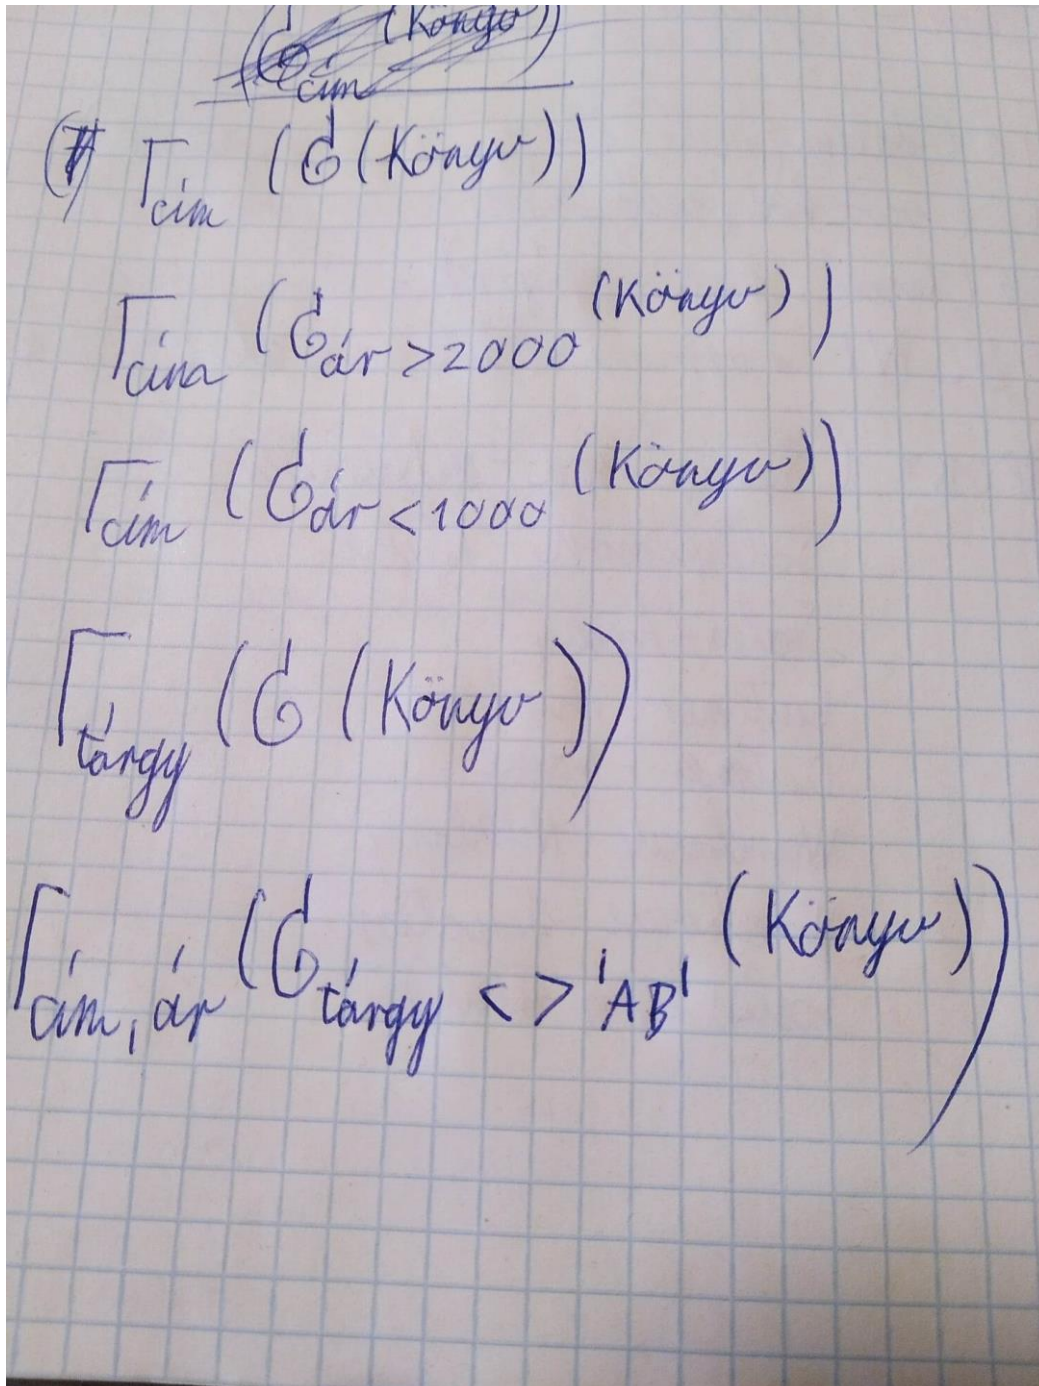 (σ cím (Könyv))
Γ cím (σ (Könyv))
Γ cím (σ ár > 2000 (Könyv))
Γ cím (σ ár < 1000 (Könyv))
Γ tárgy (σ (Könyv))
Γ cím, ár (σ tárgy <> 'AB' (Könyv))